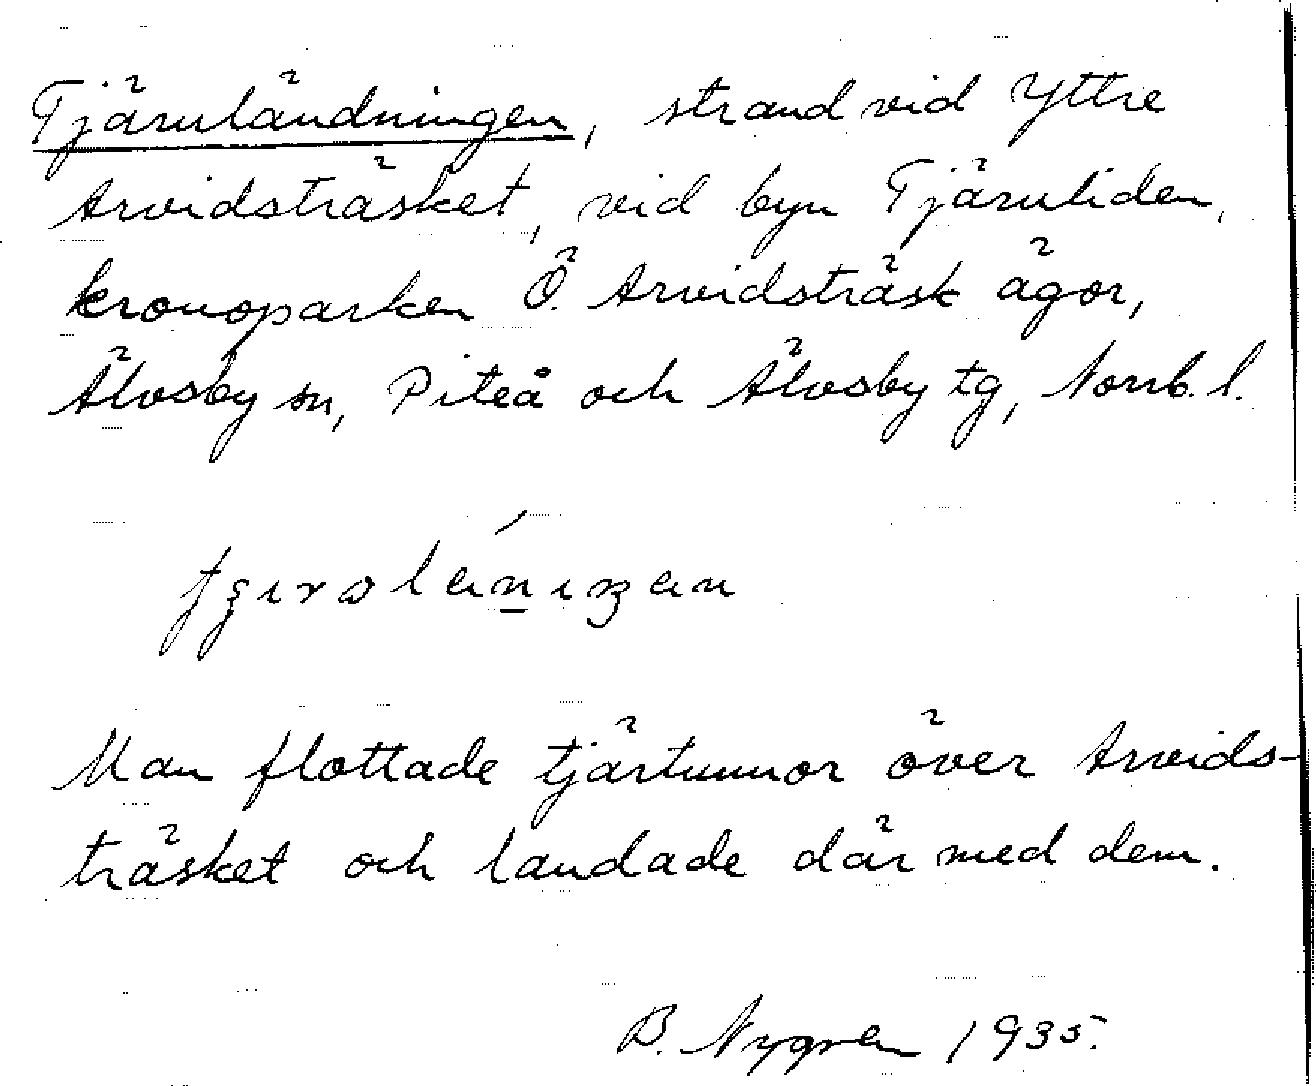 Tjärnländningen, strand vid Yttre
Arvidsträsket, vid byn Tjärnliden,
kronoparken Ö. Arvidsträsk ägor,
Älvsby sn, Piteå och Älvsby tg, Norrb. l.
Man flottade tjärtunnor över Arvids-
träsket och landade där med dem.
B. Nygren 1935.